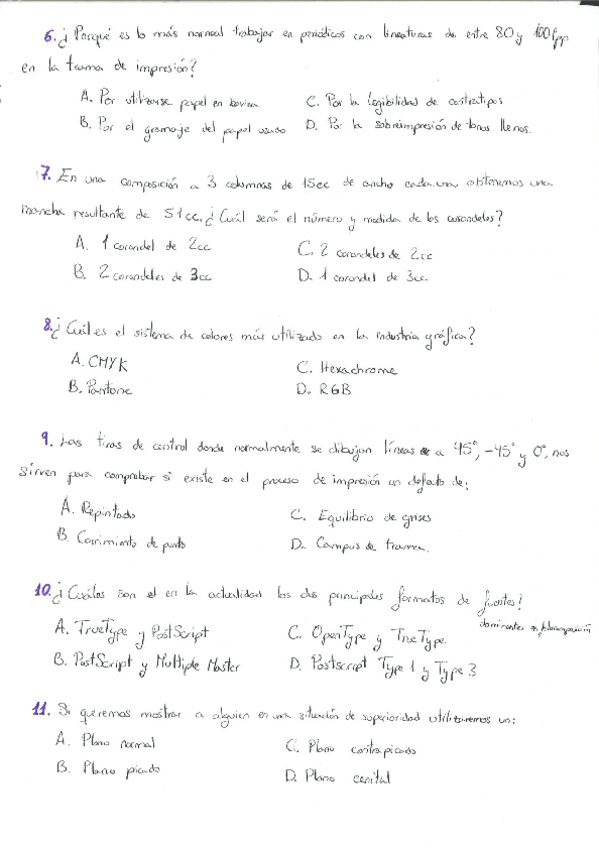 6. ¿Porqué es lo más normal trabajar en periódicos con lineaturas de entre 80 y 100 lpp
en la trama de impresión?
A. Por utilizarse papel en bobina
C. Por la legibilidad de costratipos
B. Por el gramaje del papel usado
D. Por la sobreimpresión de tonos llenos.
7. En una composición a 3 columnas de 15cc de ancho cada una, obtenemos una
mancha resultante de 51cc, ¿Cuál será el número y medida de los corondeles?
A. 1 corondel de 2cc
C. 2 corondeles de 2cc
B. 2 corondeles de 3cc
D. 1 corondel de 3cc.
8. ¿Cuál es el sistema de colores más utilizado en la industria gráfica?
A. CMYK
C. Hexachrome
B. Pantone
D. RGB
9. Las tiras de control donde normalmente se dibujan líneas a 45°, -45° y 0°, nos
sirven para comprobar si existe en el proceso de impresión un defecto de:
A. Repintado
C. Equilibrio de grises
B. Corrimiento de punto
D. Campus de trama.
10. ¿Cuáles son en la actualidad los dos principales formatos de fuentes?
dominantes en
A. TrueType y PostScript
C. OpenType y TrueType
B. PostScript y Multiple Master
D. Postscript Type 1 y Type 3
11. Si queremos mostrar a alguien en una situación de superioridad utilizaremos un:
A. Plano normal
C. Plano contrapicado
B. Plano picado
D. Plano cenital